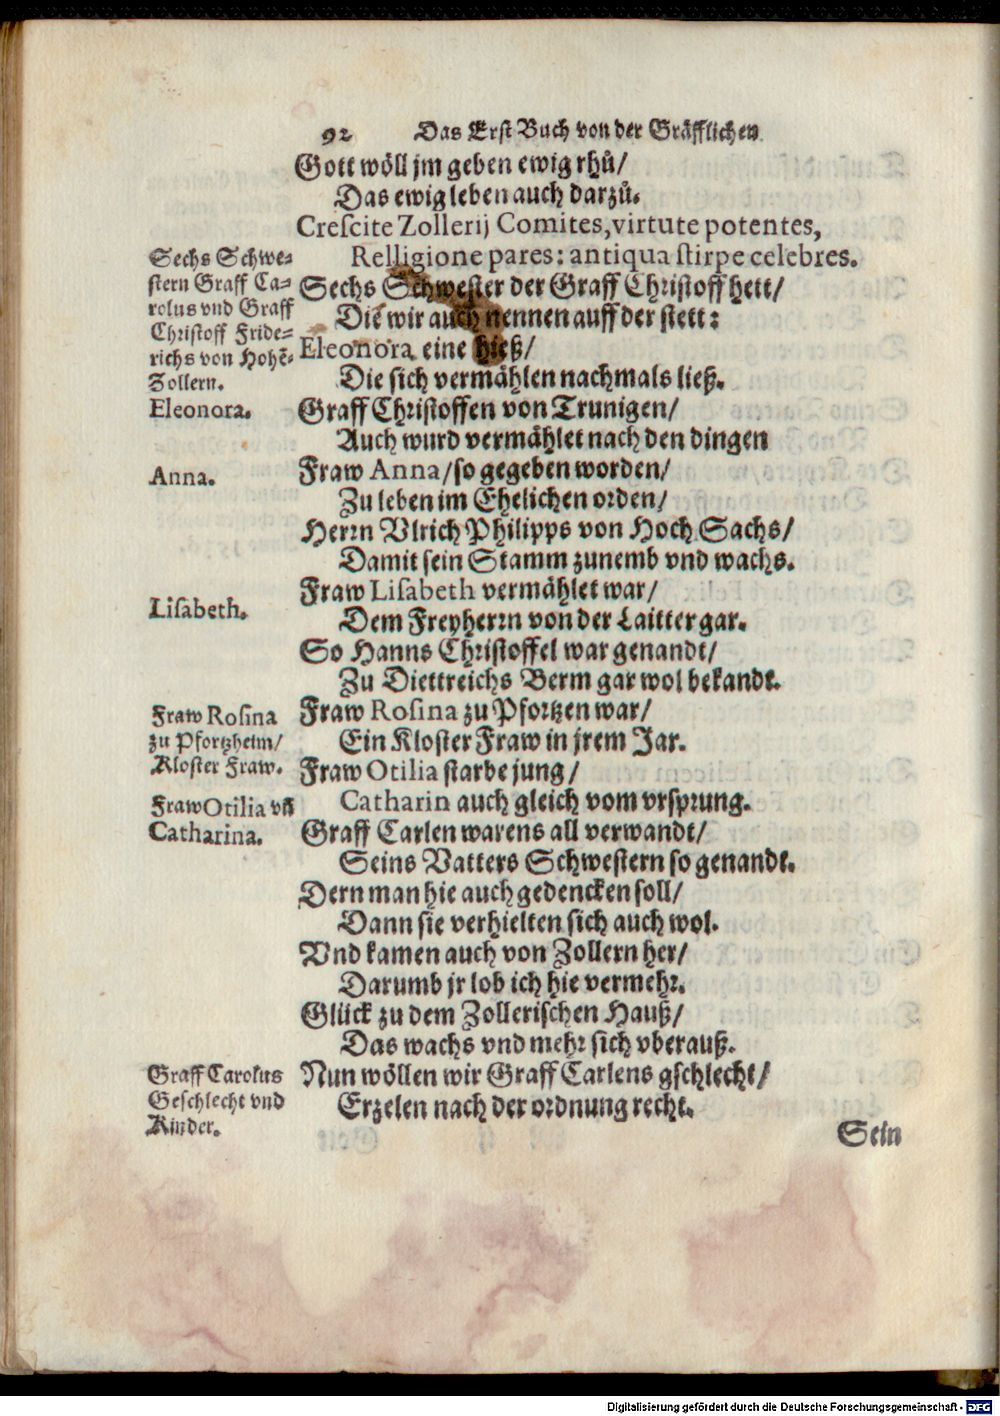 92 Das Erst Buch von der Gräfflichen
Gott wöll jm geben ewig rhů/
Das ewig leben auch darzů.
Crescite Zollerij Comites, virtute potentes,
Relligione pares: antiqua stirpe celebres.
Sechs Schwe-
stern Graff Ca-
rolus vnd Graff
Christoff Fride-
richs von Hohē-
Zollern.
Sechs Schwester der Graff Christoff hett/
Die wir auch nennen auff der stett:
Eleonora eine hieß/
Die sich vermählen nachmals ließ.
Eleonora.
Graff Christoffen von Trunigen/
Auch wurd vermählet nach den dingen
Anna.
Fraw Anna/ so gegeben worden/
Zu leben im Ehelichen orden/
Herrn Vlrich Philipps von Hoch Sachs/
Damit sein Stamm zunemb vnd wachs.
Lisabeth.
Fraw Lisabeth vermählet war/
Dem Freyherrn von der Laitter gar.
So Hanns Christoffel war genandt/
Zu Diettreichs Berm gar wol bekandt.
Fraw Rosina
zu Pfortzheim/
Kloster Fraw.
Fraw Rosina zu Pfortzen war/
Ein Kloster Fraw in jrem Jar.
Fraw Otilia vñ
Catharina.
Fraw Otilia starbe jung/
Catharin auch gleich vom vrsprung.
Graff Carlen warens all verwandt/
Seins Vatters Schwestern so genandt.
Dern man hie auch gedencken soll/
Dann sie verhielten sich auch wol.
Vnd kamen auch von Zollern her/
Darumb jr lob ich hie vermehr.
Glück zu dem Zollerischen Hauß/
Das wachs vnd mehr sich vberauß.
Graff Carolus
Geschlecht vnd
Kinder.
Nun wöllen wir Graff Carlens gschlecht/
Erzelen nach der ordnung recht.
Sein
Digitalisierung gefördert durch die Deutsche Forschungsgemeinschaft - DFG